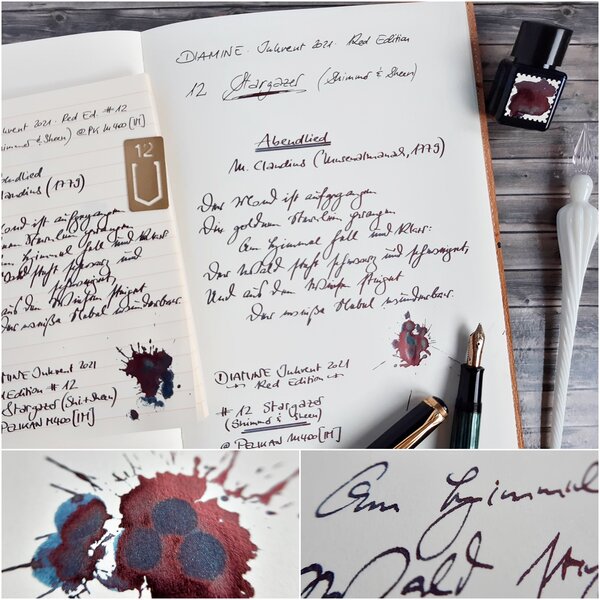 DIAMINE · Inkvent 2021 · Red Edition
12 Stargazer (Shimmer & Sheen)
Abendlied
M. Claudius (Musenalmanach, 1779)
Der Mond ist aufgegangen
Die goldnen Sternlein prangen
Am Himmel hell und klar:
Der Wald steht schwarz und schweiget,
Und aus den Wiesen steiget
Der weiße Nebel wunderbar.
DIAMINE Inkvent 2021
Red Edition
# 12 Stargazer
(Shimmer & Sheen)
@ PELIKAN M400 [M]
nkvent 2021 · Red Ed. # 12
& Sheen) @ Pk M400 [M]
12
ndlied
laudius (1779)
ond ist aufgegangen
nen Sternlein prangen
Himmel hell und klar
Wald steht schwarz und
schweiget,
aus den Wiesen steiget
Der weiße Nebel wunderbar.
AMINE Inkvent 2021
Edition # 12
Stargazer (Shi.+Shee)
PELIKAN M400 [M]
Am Himmel
Wald ste